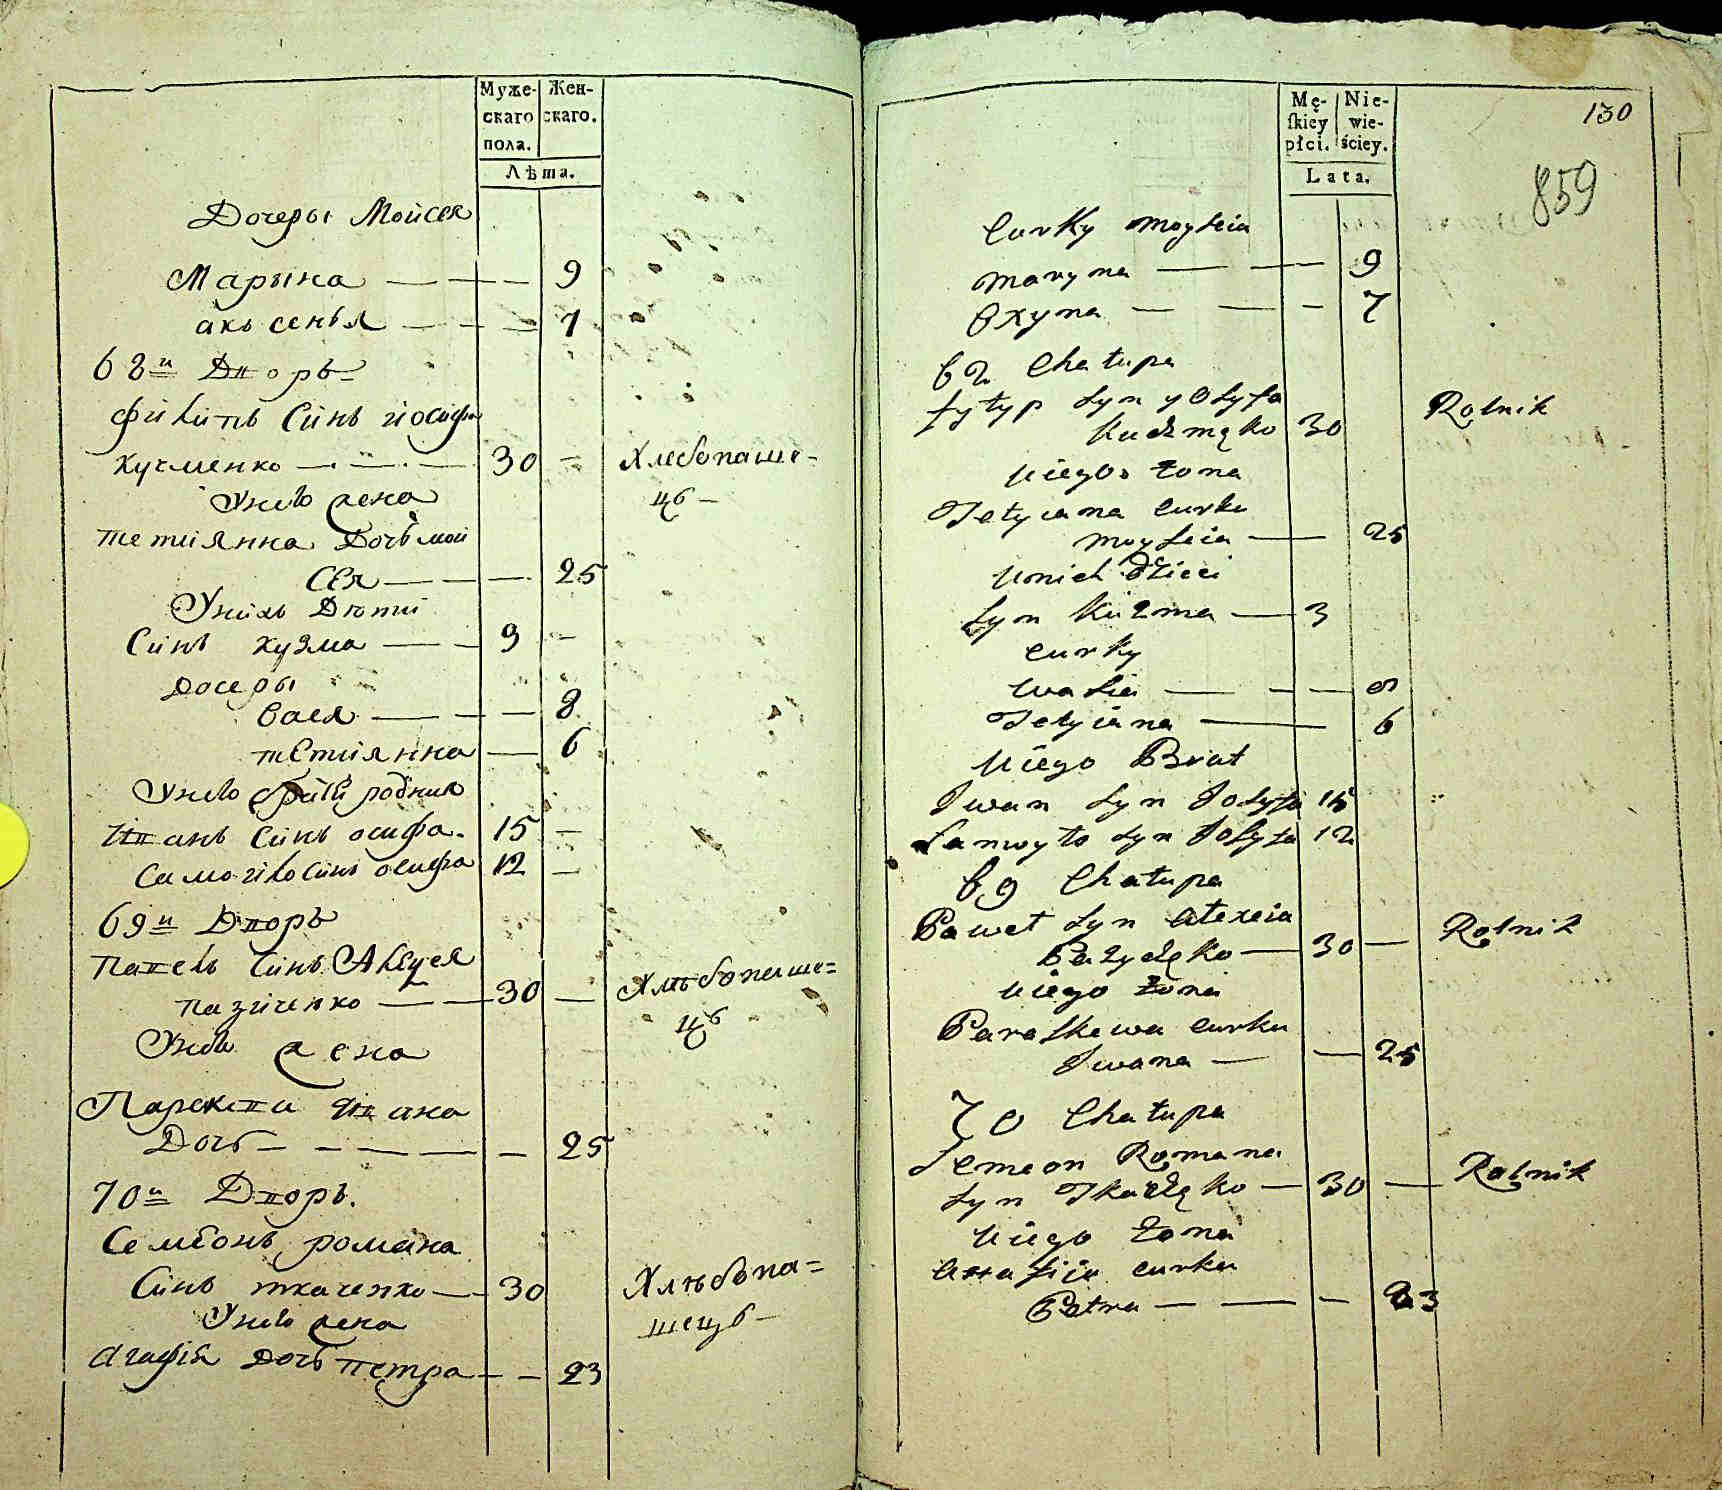 Муже-
скаго
пола.
Жен-
скаго.
Лѣта.
Дочеры Мойсея
Марына — — — 9
аксенья — — — 7
68й Дворъ
филипъ Синъ йосифа
кучменко — — — 30 — Хлебопаше-
Унего жена
цъ —
тетиянна Дочъ мой
сея — — — 25
Унихъ Дѣти
Синъ кузма — — 9 —
дочеры
вася — — — 8
тетиянна — 6
Унего братъ родныи
Иванъ Синъ осифа. 15 —
самойло синъ осифа 12 —
69й Дворъ
павелъ Синъ Алексея
пазиченко — — 30 — Хлѣбопаше=
цъ
Унего жена
Парскева Ивана
Дочъ — — — — — 25
70й Дворъ.
Семеонъ романа
Синъ ткаченко — — 30
Хлѣбопа=
шецъ —
Унего жена
Агафия дочъ петра — — 23
Mę-
ſkiey
płci.
Nie-
wie-
ściey.
Lata.
130
859
Curky Moyseia
Maryna — — — 9
Oxyna — — — 7
68 Chałupa
Fylyp syn yosyfa
Kuczmęko 30
Rolnik
u iego żona
Tetyiana curka
Moyseia — — 25
u nich dzieci
syn Kuzma — 3
curky
Wasia — — — 8
Tetyiana — 6
u iego Brat
Iwan syn Iosyfa 15
Samoyło syn Iosyfa 12
69 Chałupa
Paweł syn Alexeia
Pazyczęko — 30 — Rolnik
u iego żona
Paraskewa curka
Iwana — — 25
70 Chałupa
Semeon Romana
syn Tkaczęko — 30 — Rolnik
u iego żona
Ahafija curka
Petra — — — 23